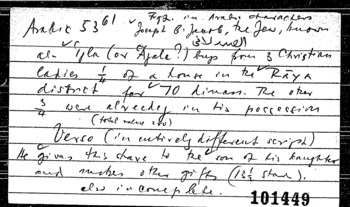 Arabic 53(6)
Fgt. in Arabic characters
Joseph b. Jacob, the Jew, known
as (or Ajala?) buys from 3 Christian
ladies 1/4 of a house in the Rāya
district for 70 dinars. The other
3/4 were already in his possession
(total value 280)
Verso (in entirely different script)
He gives this share to the son of his daughter
and makes other gifts (13½ shares).
also incomplete.
101449